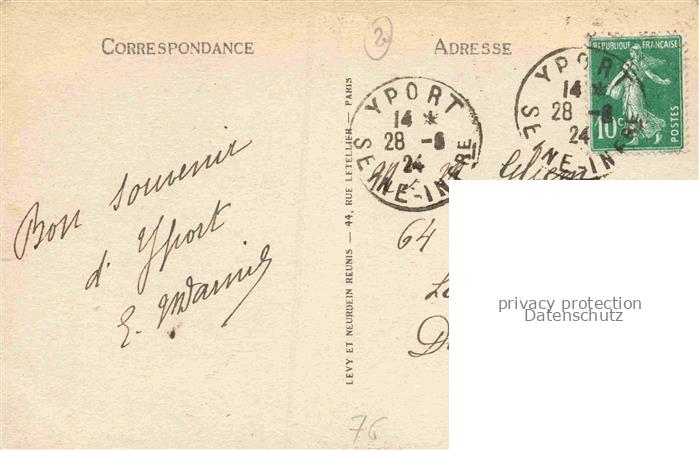 2
CORRESPONDANCE
ADRESSE
REPUBLIQUE FRANÇAISE
10c
POSTES
YPORT
14 *
28 -8
24
SEINE-INFRE
YPORT
14 *
28 -8
24
SEINE-INFRE
Bon souvenir
d'Yport
E.
LEVY ET NEURDEIN REUNIS — 44, RUE LETELLIER — PARIS
64
privacy protection
Datenschutz
76